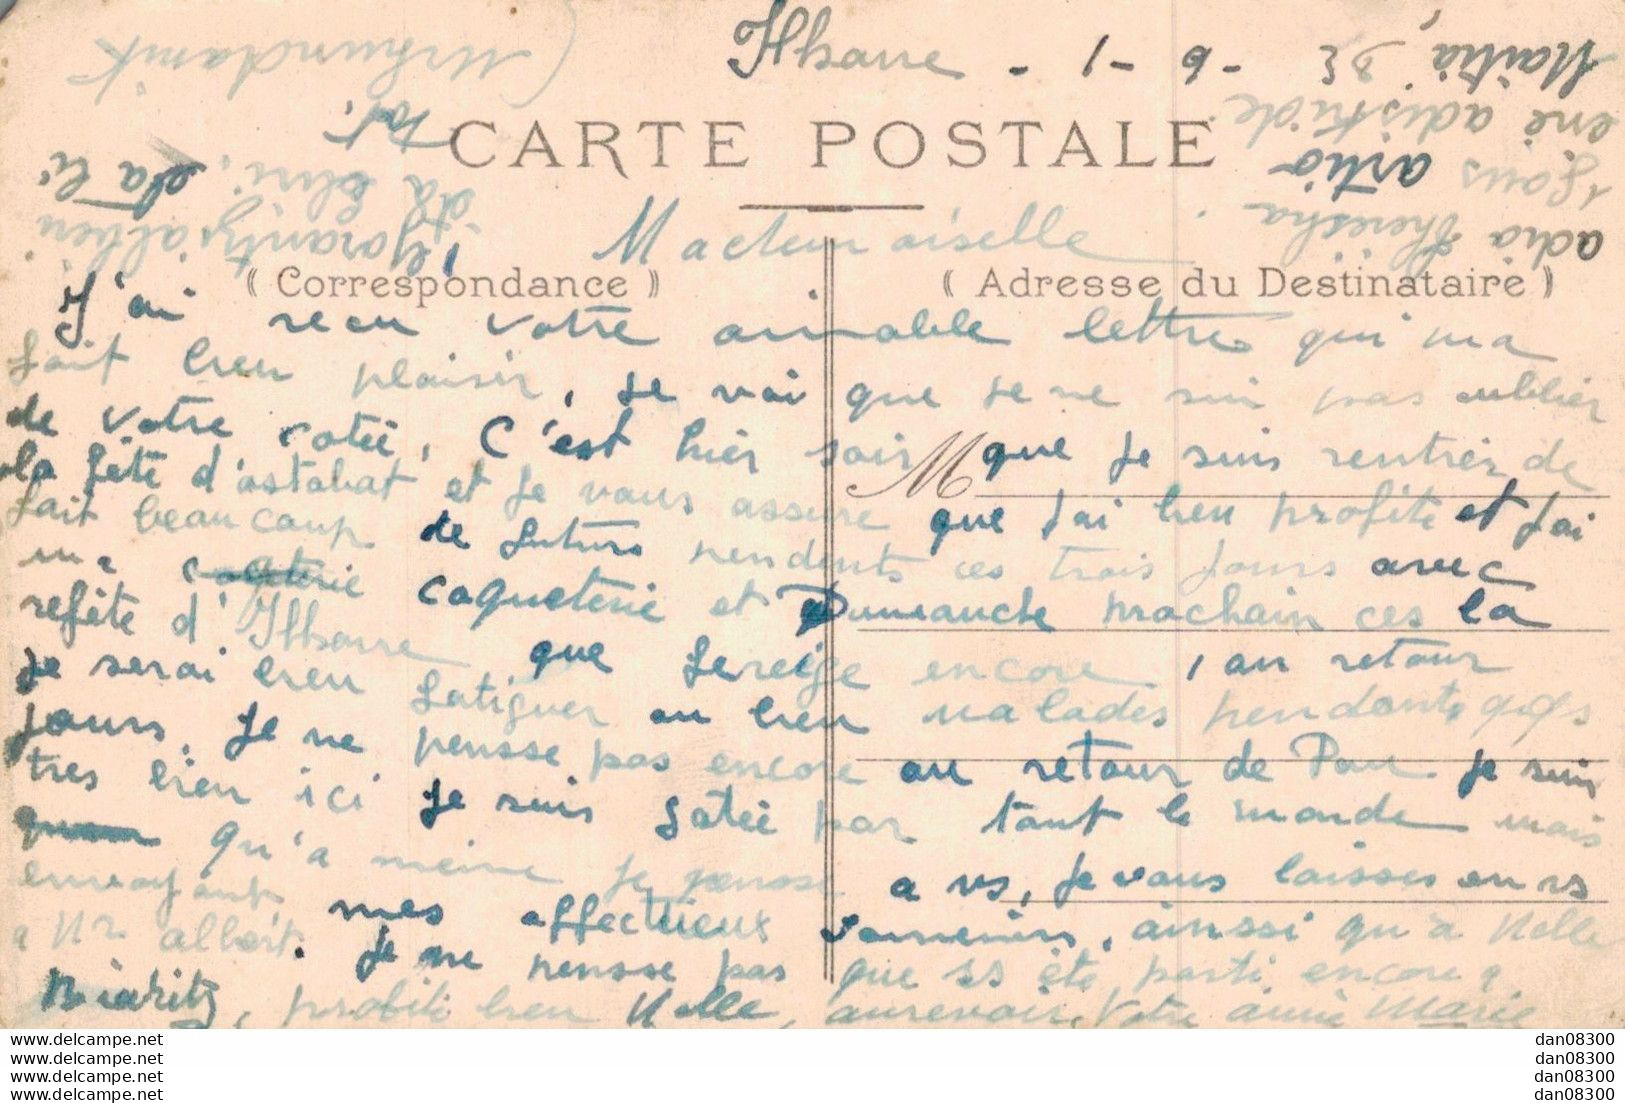 Ithsarre - 1 - 6 - 32
CARTE POSTALE
Mademoiselle
(( Correspondance ))
( Adresse du Destinataire )
J'ai recu votre aimable lettre qui ma
fait bien plaisir, je voi que je ne suis pas oublier
de votre cotée, C'est hier soir que je suis rentrér de
la fête d'ostabat et je vous assure que j'ai bien profite et j'ai
fait beaucoup de futurs pendents ces trois jours avec
ma coqueterie et Dimanche prochain ces la
refête d'Ithsarre que je reige encore, au retour
je serai bien fatiguer ou bien malades pendants qqs
jours, je ne pensse pas encore au retour de Pau je suis
tres bien ici je suis gatée par tout le monde mais
qu'a meme je pensse a vs, je vous laisses en vs
envoyant mes affectueux souvenirs, ainssi qu'à Melle
a Mr albert. je ne pensse pas que ss ète parti encore a
Biaritz, profiti bien Melle, aurevoir, Votre amie Marie
Maitia,
ene adiskide
artio
adio Theresha
M
dan08300
dan08300
dan08300
dan08300
www.delcampe.net
www.delcampe.net
www.delcampe.net
www.delcampe.net